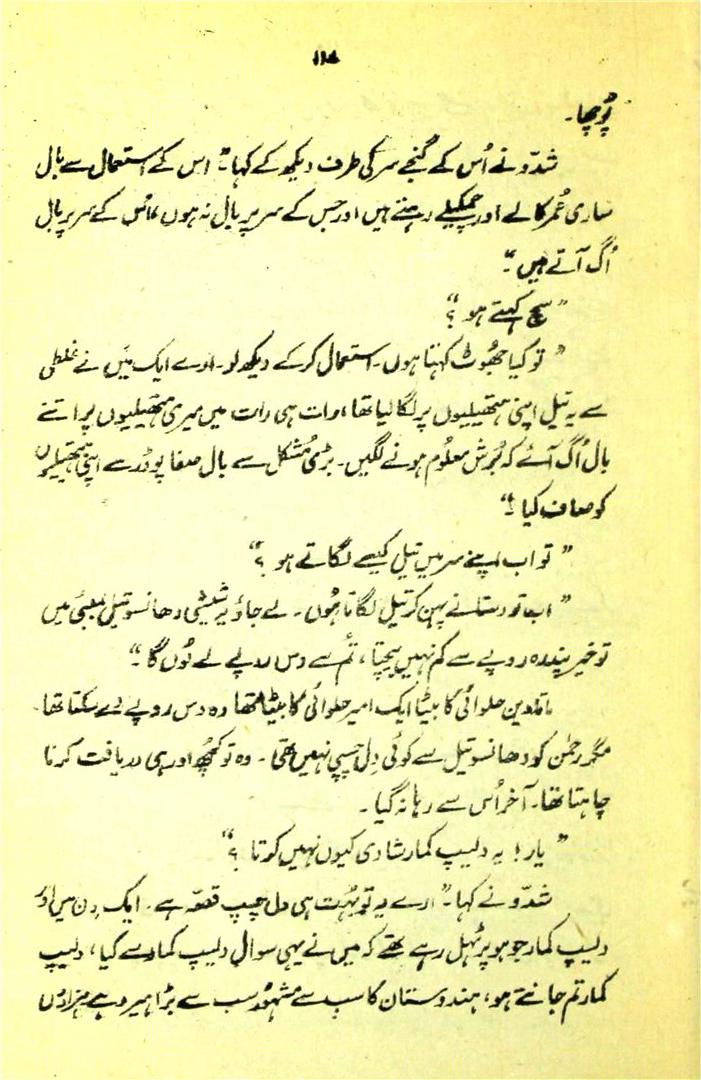 ۱۱۷
پُوچھا۔
شدّو نے اُس کے گنجے سر کی طرف دیکھ کے کہا۔" اس کے استعمال سے بال
ساری عُمر کالے اور چمکیلے رہتے ہیں اور جس کے سر پر بال نہ ہوں اُس کے سر پر بال
اُگ آتے ہیں۔"
"سچ کہتے ہو ؟"
"تو کیا جھُوٹ کہتا ہوں۔ استعمال کر کے دیکھ لو۔ ارے ایک میں نے غلطی
سے یہ تیل اپنی ہتھیلیوں پر لگا لیا تھا، رات ہی رات میں میری ہتھیلیوں پر اتنے
بال اُگ آئے کہ بُرش معلُوم ہونے لگیں۔ بڑی مُشکل سے بال صفا پوڈر سے اپنی ہتھیلیوں
کو صاف کیا !"
"تو اب اپنے سر میں تیل کیسے لگاتے ہو ؟"
"اب تو دستانے پہن کر تیل لگاتا ہُوں۔ لے جاؤ یہ شیشی دھانسو تیل بمبئی میں
تو خیر پندرہ روپے سے کم نہیں بیچتا، تُم سے دس روپے لے لُوں گا۔"
ماتادین حلوائی کا بیٹا ایک امیر حلوائی کا بیٹا تھا وہ دس روپے دے سکتا تھا۔
مگر رحمٰن کو دھانسو تیل سے کوئی دِل چسپی نہیں تھی۔ وہ تو کچھُ اور ہی دریافت کرنا
چاہتا تھا۔ آخر اُس سے رہا نہ گیا۔
"یار! یہ دلیپ کمار شادی کیوں نہیں کرتا ؟"
شدّو نے کہا۔" ارے یہ تو بہُت ہی دل چسپ قصّہ ہے۔ ایک دِن میں اور
دلیپ کمار جوہو پر ٹہل رہے تھے کہ میں نے یہی سوال دلیپ کمار سے کیا، دلیپ
کمار تم جانتے ہو، ہندوستان کا سب سے مشہُور سب سے بڑا ہیرو ہے ہزاروں